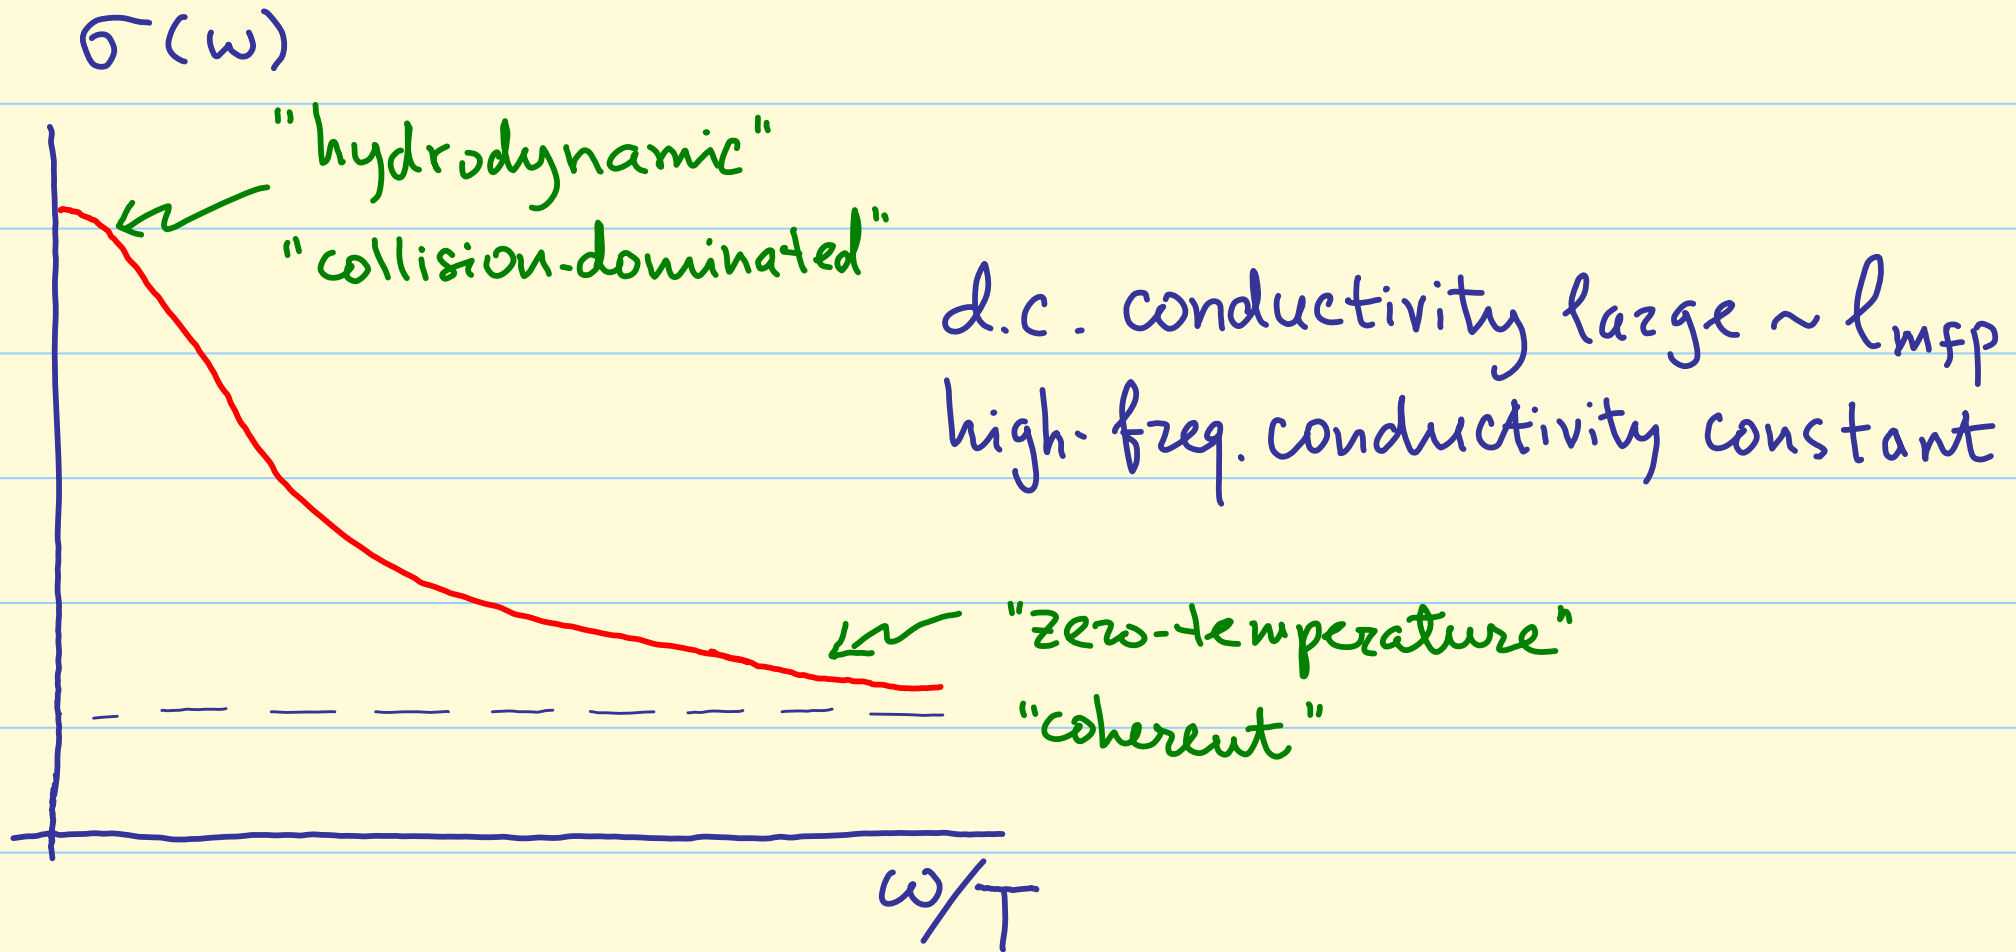 σ(ω)
"hydrodynamic"
"collision-dominated"
d.c. conductivity large ~ l_mfp
high-freq. conductivity constant
"zero-temperature"
"coherent"
ω/T